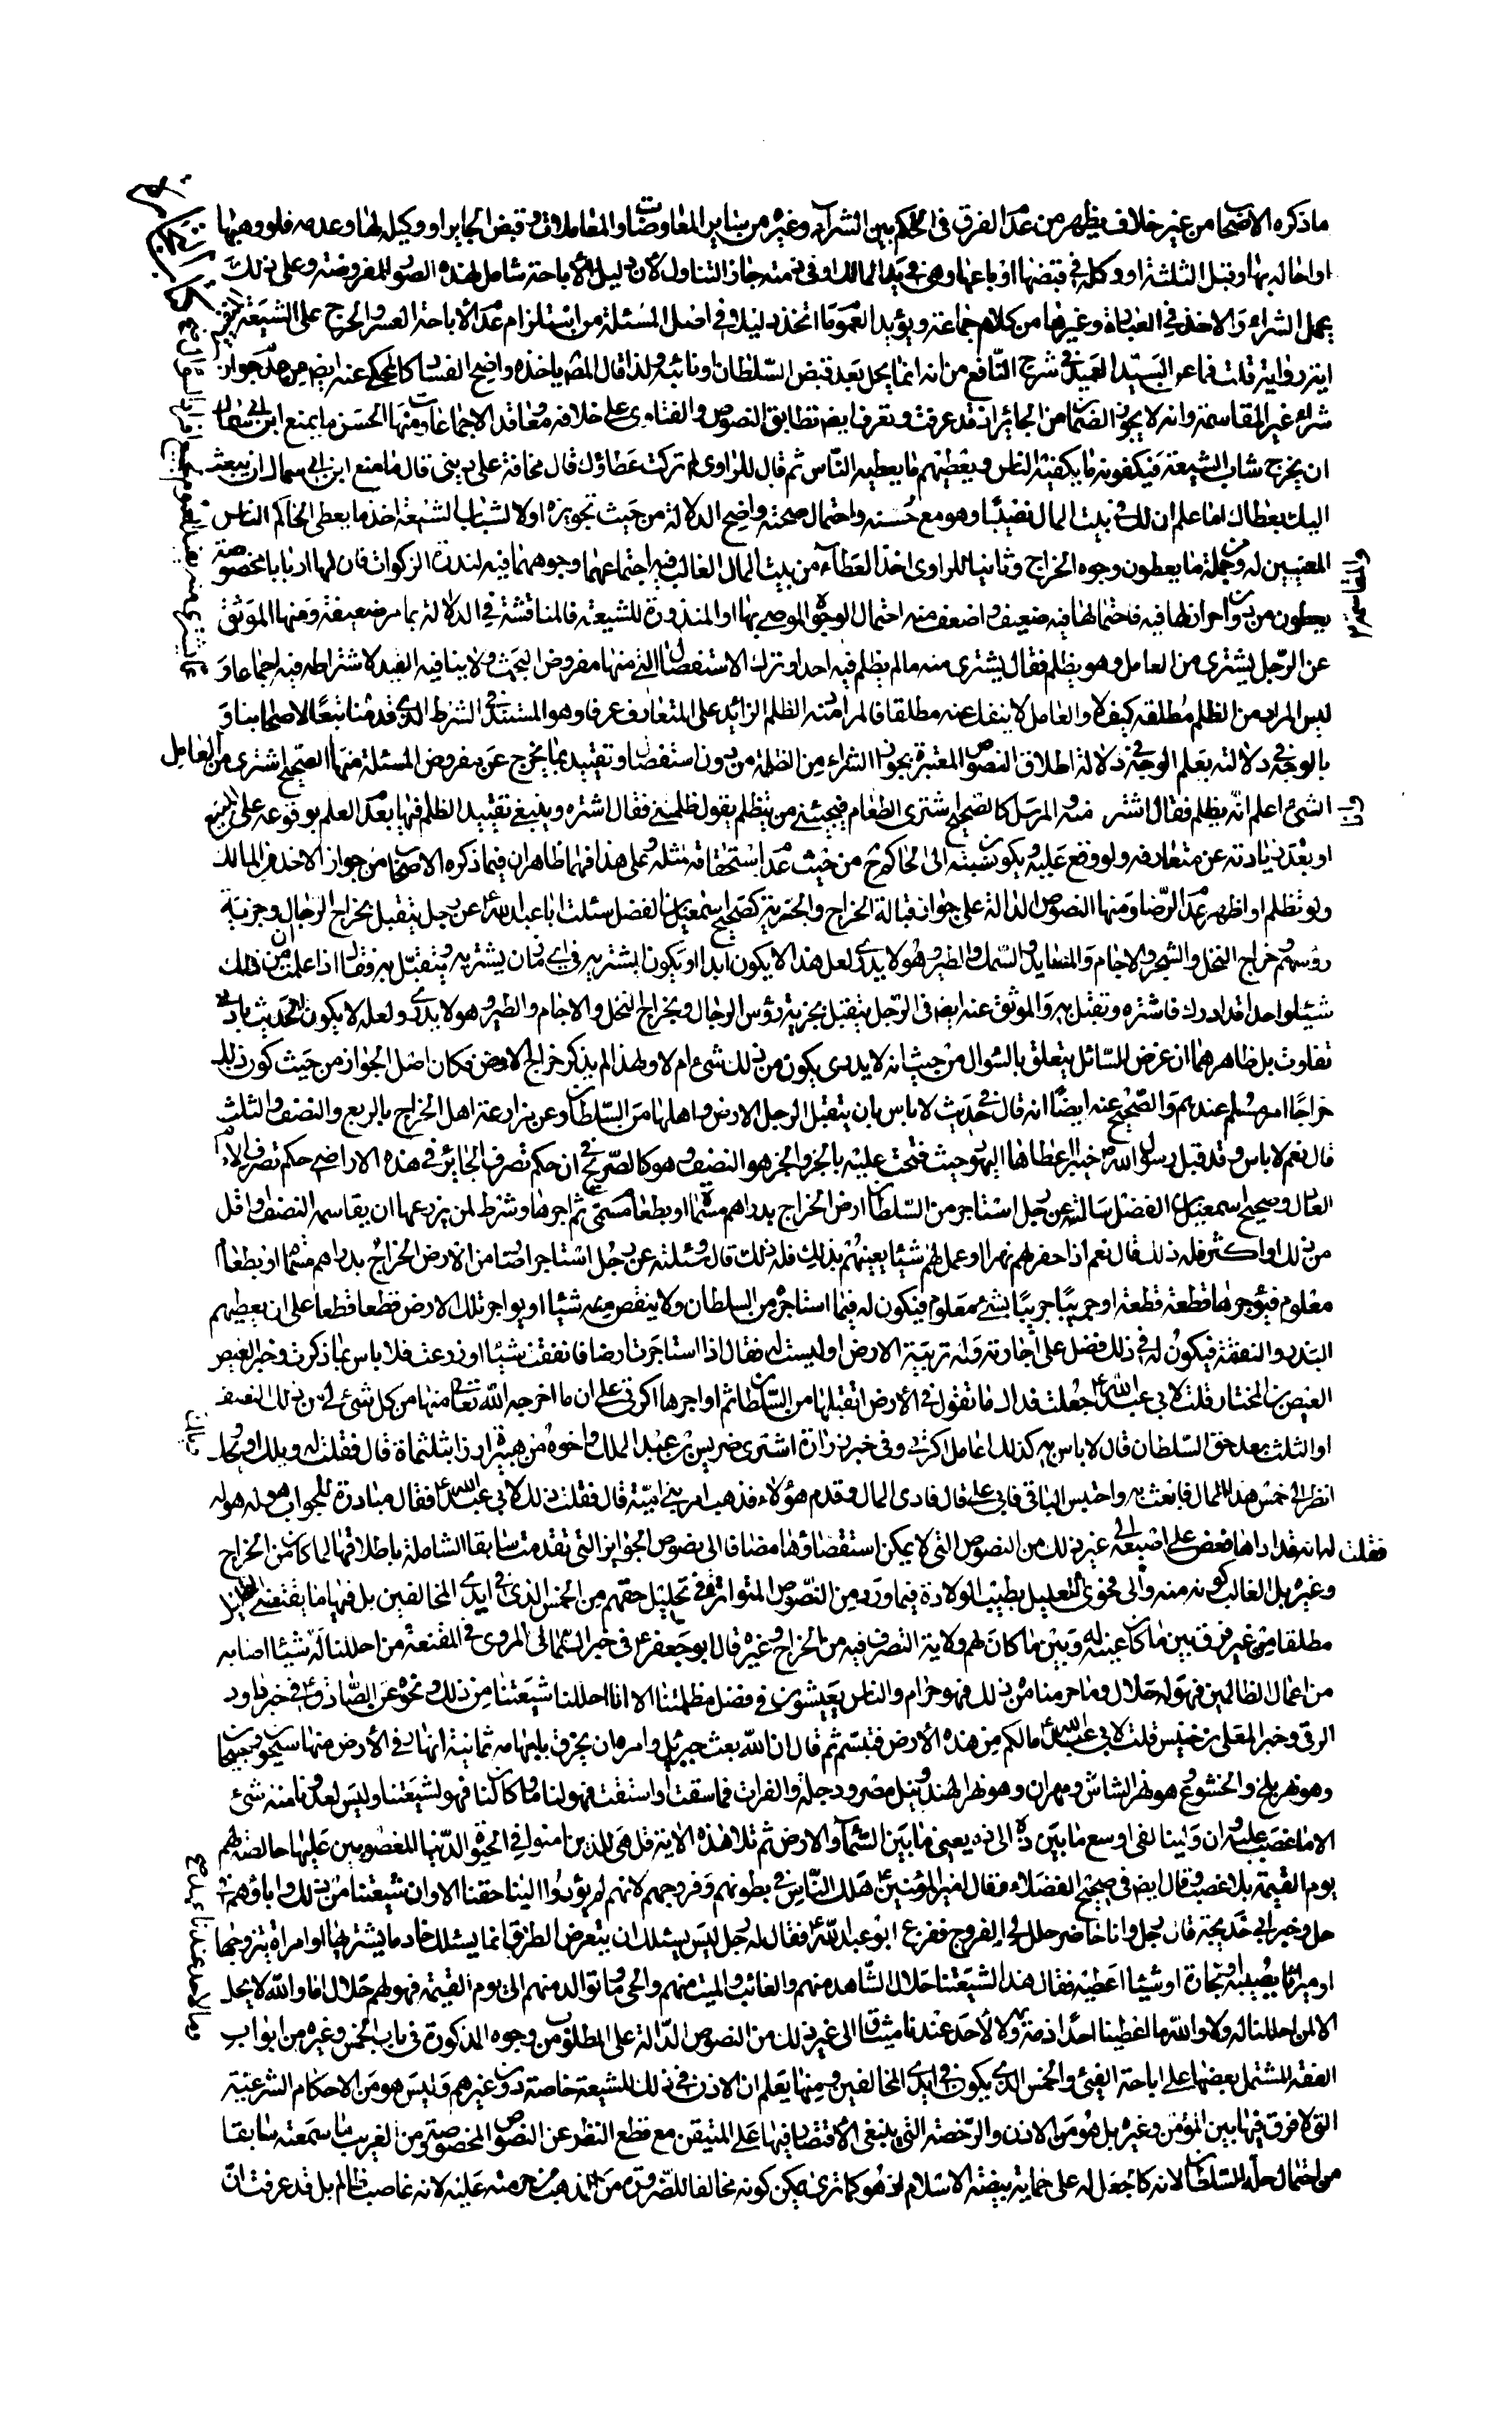 ما ذكره الاصحاب من غير خلاف يظهر من عدم الفرق فى الحكم بين الشراء وغيره من ساير المعاوضات والمعاملات وقبض الجاير او وكيله لها وعدمه فلو وهبها
او احاله بها وقبل الثلثة او وكله فى قبضها او باعها وهى فى يد المالك او فى ذمته جاز التناول لأن دليل الأباحة شامل لهذه الصور المفروضة وعلى ذلك
يحمل الشراء والاخذ فى العبارة وغيرها من كلام جماعة ويؤيد العموم ما اتخذ دليلا فى اصل المسئلة من استلزام عدم الأباحة العسر والحرج على الشيعة
رواية قلت فما عن السيد العميد فى شرح النافع من انه انما يحل بعد قبض السلطان او نائبه ولذا قال المصـ ياخذه واضح الفساد كالمحكى عنه ايضـ من عدم جواز
شراء غير المقاسمة وانه لا يجوز الضمان من الجائر اذ قد عرفت وتعرف ايضـ تطابق النصوص والفتاوى على خلافه ومعاقد الاجماعات ومنها الحسن ما يمنع ابن ابى سمال
ان يخرج شاب الشيعة فيكفونه ما يكفيه الناس ويعطيهم ما يعطيه الناس ثم قال للراوى لم تركت عطاؤك قال مخافة على دينى قال ما منع ابن ابى سمال ان يبعث
اليك بعطائك اما علم ان لك فى بيت المال نصيبا وهو مع حسنه واحتمال صحته واضح الدلالة من حيث تجويزه اولا لشباب الشيعة اخذ ما يعطى الحاكم الناس
المعينين له ومن جملة ما يعطون وجوه الخراج وثانيا للراوى اخذ العطاء من بيت المال الغالب فيه اجتماعهما وجوههما فيه لندرة الزكوات فان لها اربابا مخصوصة
يعطون من دون احرازها فيه فاحتمالها فيه ضعيف واضعف منه احتمال الوجوه الموصى بها او المنذورة للشيعة فالمناقشة فى الدلالة بما مر ضعيفة ومنها الموثق
عن الرجل يشترى من العامل وهو يظلم فقال يشترى منه ما لم يظلم فيه احدا وترك الاستفصال التى منها مفروض البحث ولا ينافيه القيد لاشتراطه فيه اجماعا و
ليس المراد من الظلم مطلقه كيف لا والعامل لا ينفك عنه مطلقا فالمراد منه الظلم الزائد على المتعارف عرفا وهو المستند فى الشرط الذى قدمنا تبعا لاصحابنا و
بالوجه فى دلالته يعلم الوجه فى دلالة اطلاق النصوص المعتبرة بجواز الشراء من الظلمة من دون استفصال او تقييد بما يخرج عن مفروض المسئلة منها الصحيح اشترى من العامل
الشئ اعلم انه يظلم فقال اشتر منه والمرسل كالصحيح اشترى الطعام فيجيئنى من يتظلم يقول ظلمنى فقال اشتره وينبغى تقييد الظلم فيها بعدم العلم بوقوعه على المبيع
او بعدم زيادته عن متعارفه ولو وقع عليه ويكون نسبته الى من حيث عدم استحقاقه مثله وعلى هذا فهما ظاهران فيما ذكره الاصحاب من جواز الاخذ من المالك
ولو تظلم او اظهر عدم الرضا ومنها النصوص الدالة على جواز قبالة الخراج والجزية كصحيح اسمعيل بن الفضل سئلت ابا عبد الله ع عن رجل يتقبل بخراج الرجال وجزية
رؤسهم وخراج النخل والشجر والاجام والمصايد والسمك والطير وهو لا يدرى لعل هذا لا يكون ابدا او يكون ايشتريه فى اى زمان يشتريه ويتقبل به فقال اذا علمت ان من ذلك
شيئا واحدا قد ادرك فاشتره وتقبل به والموثق عنه ايضـ فى الرجل يتقبل بجزية رؤس الرجال وبخراج النخل والاجام والطير وهو لا يدرى ولعله لا يكون
تفاوت بل ظاهرهما ان غرض السائل يتعلق بالسؤال من حيث انه لا يدرى يكون من ذلك شئ ام لا ولهذا لم يذكر خراج الارض فكان اصل الجواز من حيث كون ذلك
خراجا امر مسلم عندهم والصحيح عنه ايضا انه قال فى حديث لا باس بان يتقبل الرجل الارض واهلها من السلطان وعن مزارعة اهل الخراج بالربع والنصف والثلث
قال نعم لا باس وقد قبل رسول الله ص خيبر اعطاها اليهود حيث فتحت عليه بالخبر والخبر هو النصف وهو كالصريح فى ان حكم تصرف الجائر فى هذه الاراضى حكم تصرف الامام
العادل وصحيح اسمعيل بن الفضل سالته عن رجل استاجر من السلطان ارض الخراج بدراهم مسماة او بطعام مسمى ثم اجرها وشرط لمن يزرعها ان يقاسمه النصف واقل
من ذلك او اكثر فله ذلك قال نعم اذا حفر لهم نهرا او عمل لهم شيئا يعينهم بذلك فله ذلك قال وسئلته عن رجل استاجر ارضا من الارض الخراج بدراهم مسماة او بطعام
معلوم فيؤجرها قطعة قطعة او جريبا جريبا بشئ معلوم فيكون له فيما استاجره من السلطان ولا ينفق منه شيئا او يواجر تلك الارض قطعا قطعا على ان يعطيهم
البذر والنفقة فيكون له فى ذلك فضل على اجارته وله تربة الارض او ليست له فقال اذا استاجرت ارضا فانفقت شيئا او زرعت فلا باس بما ذكرت وخبر الفيض
الفيض بن المختار قلت لابى عبد الله ع جعلت فداك ما تقول فى الأرض اتقبلها من السلطان ثم اواجرها اكرتى على ان ما اخرجه الله تعالى منها من كل شئ لى من ذلك النصف
او الثلث بعد حق السلطان قال لا باس به كذلك اعامل اكرتى وفى خبر زرارة اشترى ضريس بن عبد الملك واخوه من هبيرة ارزا بثلثماة قال فقلت له ويلك او ويحك
انظر الى خمس هذا المال فابعث به واحتبس الباقى فابى على قال فادى المال وقدم هؤلاء فذهب امر بنى امية قال فقلت ذلك لابى عبد الله ع فقال مبادرة للجواب هو له هو له
فقلت له انه قد اداها فعض على اصبعه الى غير ذلك من النصوص التى لا يمكن استقصاؤها مضافا الى نصوص الجوايز التى تقدمت سابقا الشاملة باطلاقها لما كان من الخراج
وغيره بل الغالب كونه منه والى فحوى التعليل بطيب الولادة فيما ورد من النصوص المتواترة فى تحليل حقهم من الخمس الذى فى ايدى المخالفين بل فيها ما يقتضى
مطلقا من غير فرق بين ما كان عينه له وبين ما كان لهم ولاية التصرف فيه من الخراج وغيره قال ابو جعفر ع فى خبر الثمالى المروى فى المقنعة من احللنا له شيئا اصابه
من اعمال الظالمين فهو له حلال وما حرمناه من ذلك فهو حرام والناس يعيشون فى فضل مظلمتنا الا انا احللنا شيعتنا من ذلك ونحوه عن الصادق ع فى خبر داود
الرقى وخبر المعلى بن خنيس قلت لابى عبد الله ع ما لكم من هذه الأرض فتبسم ثم قال ان الله بعث جبرئيل وامره ان يخرق بابهامه ثمانية انهار فى الأرض منها سيحون وجيحون
وهو نهر بلخ والخشوع هو نهر الشاش ومهران وهو نهر الهند ونيل مصر ودجلة والفرات فما سقت او استقت فهو لنا وما كان لنا فهو لشيعتنا وليس لعدونا منه شئ
الا ما غصب عليه وان ولينا لفى اوسع ما بين ذه الى ذه يعنى ما بين السماء والارض ثم تلا هذه الاية قل هى للذين امنوا فى الحيوة الدنيا المغصوبين عليها خالصة لهم
يوم القيمة بلا غصب وقال ايضـ فى صحيح الفضلاء فقال امير المؤمنين ع هلك الناس فى بطونهم وفروجهم لانهم لم يؤدوا الينا حقنا الا وان شيعتنا من ذلك واباؤهم فى
حل وخبر ابى خديجة قال رجل وانا حاضر حلل لى الفروج ففزع ابو عبد الله ع فقال له رجل ليس يسئلك ان يتعرض الطرق انما يسئلك خادما يشتريها او امراة يتزوجها
او ميراثا يصيبه او تجارة او شيئا اعطيه فقال هذا لشيعتنا حلال الشاهد منهم والغائب والميت منهم والحى وما توالد منهم الى يوم القيمة فهو لهم حلال اما والله لا يحل
الا لمن احللنا له ولا والله ما اعطينا احدا ذمة وما لاحد عندنا ميثاق الى غير ذلك من النصوص الدالة على المطلوب من وجوه المذكورة فى باب الخمس وغيره من ابواب
الفقه المشتمل بعضها على اباحة الفئ والخمس الذى يكون فى ايدى المخالفين ومنها يعلم ان الاذن فى ذلك للشيعة خاصة دون غيرهم وليس هو من الاحكام الشرعية
التى لا فرق فيها بين المؤمن وغيره بل هو من الاذن والرخصة التى ينبغى الأقتصار فيها على المتيقن مع قطع النظر عن النصوص المخصوصة ومن الغريب ما سمعته سابقا
من احتمال حله للسلطان لانه كالجعل له على حماية بيضة الاسلام اذ هو كما ترى يمكن كونه مخالفا للضرورى من المذهب حرمته عليه لانه غاصب ظالم بل قد عرفت ان